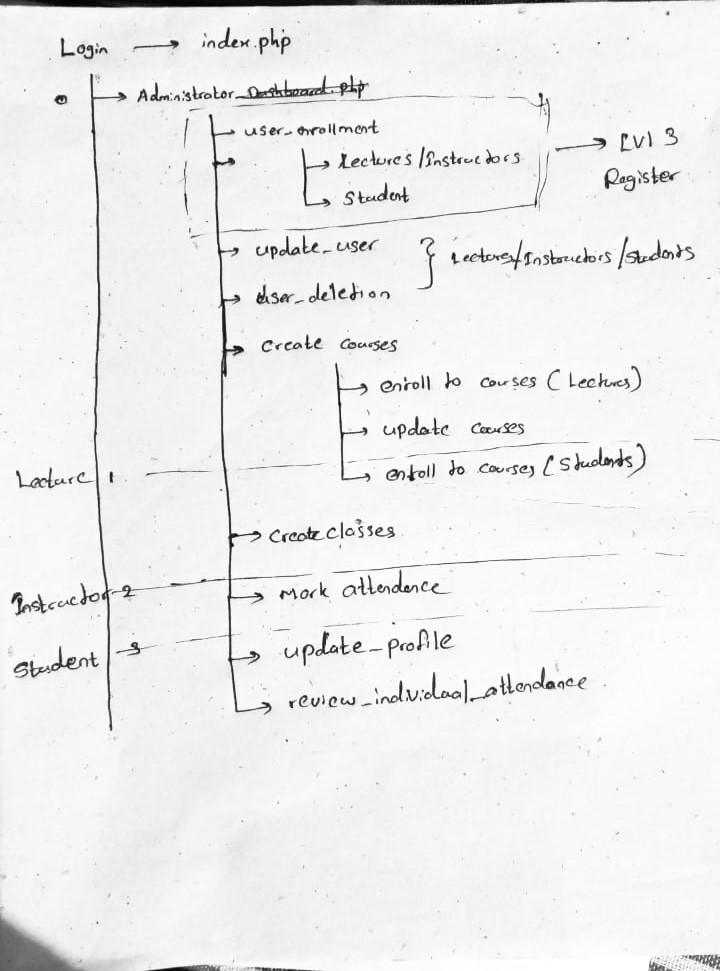 Login → index.php
Administrator_Dashboard.php
user_enrollment
Lectures/Instructors
Student
→ LVL 3
Register
update_user
user_deletion
} Lectures/Instructors/Students
create courses
enroll to courses (Lectures)
update courses
enroll to courses (Students)
Lecture 1
create classes
Instructor 2
Mark attendence
Student 3
update_profile
review_individual_attendance